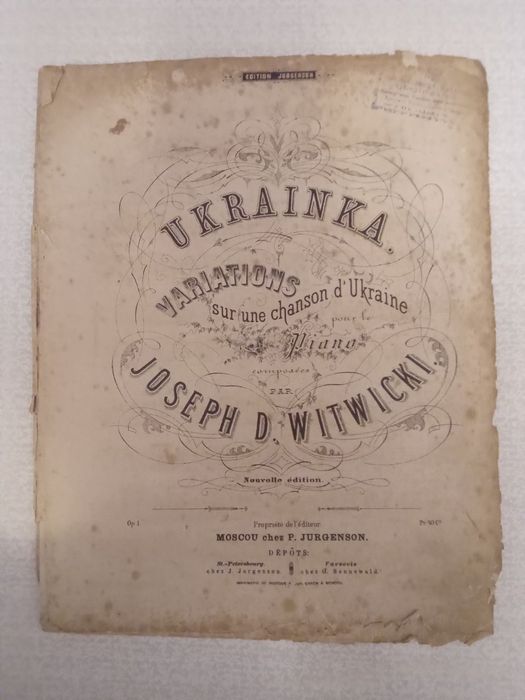 EDITION JURGENSON
UKRAINKA,
VARIATIONS
sur une chanson d'Ukraine
pour le
Piano
composées
PAR
JOSEPH D. WITWICKI.
Nouvelle édition
Op. 1
Propriété de l'éditeur
MOSCOU chez P. JURGENSON.
DÉPÔTS:
St.-Pétersbourg Varsovie
chez J. Jurgenson chez G. Sennewald